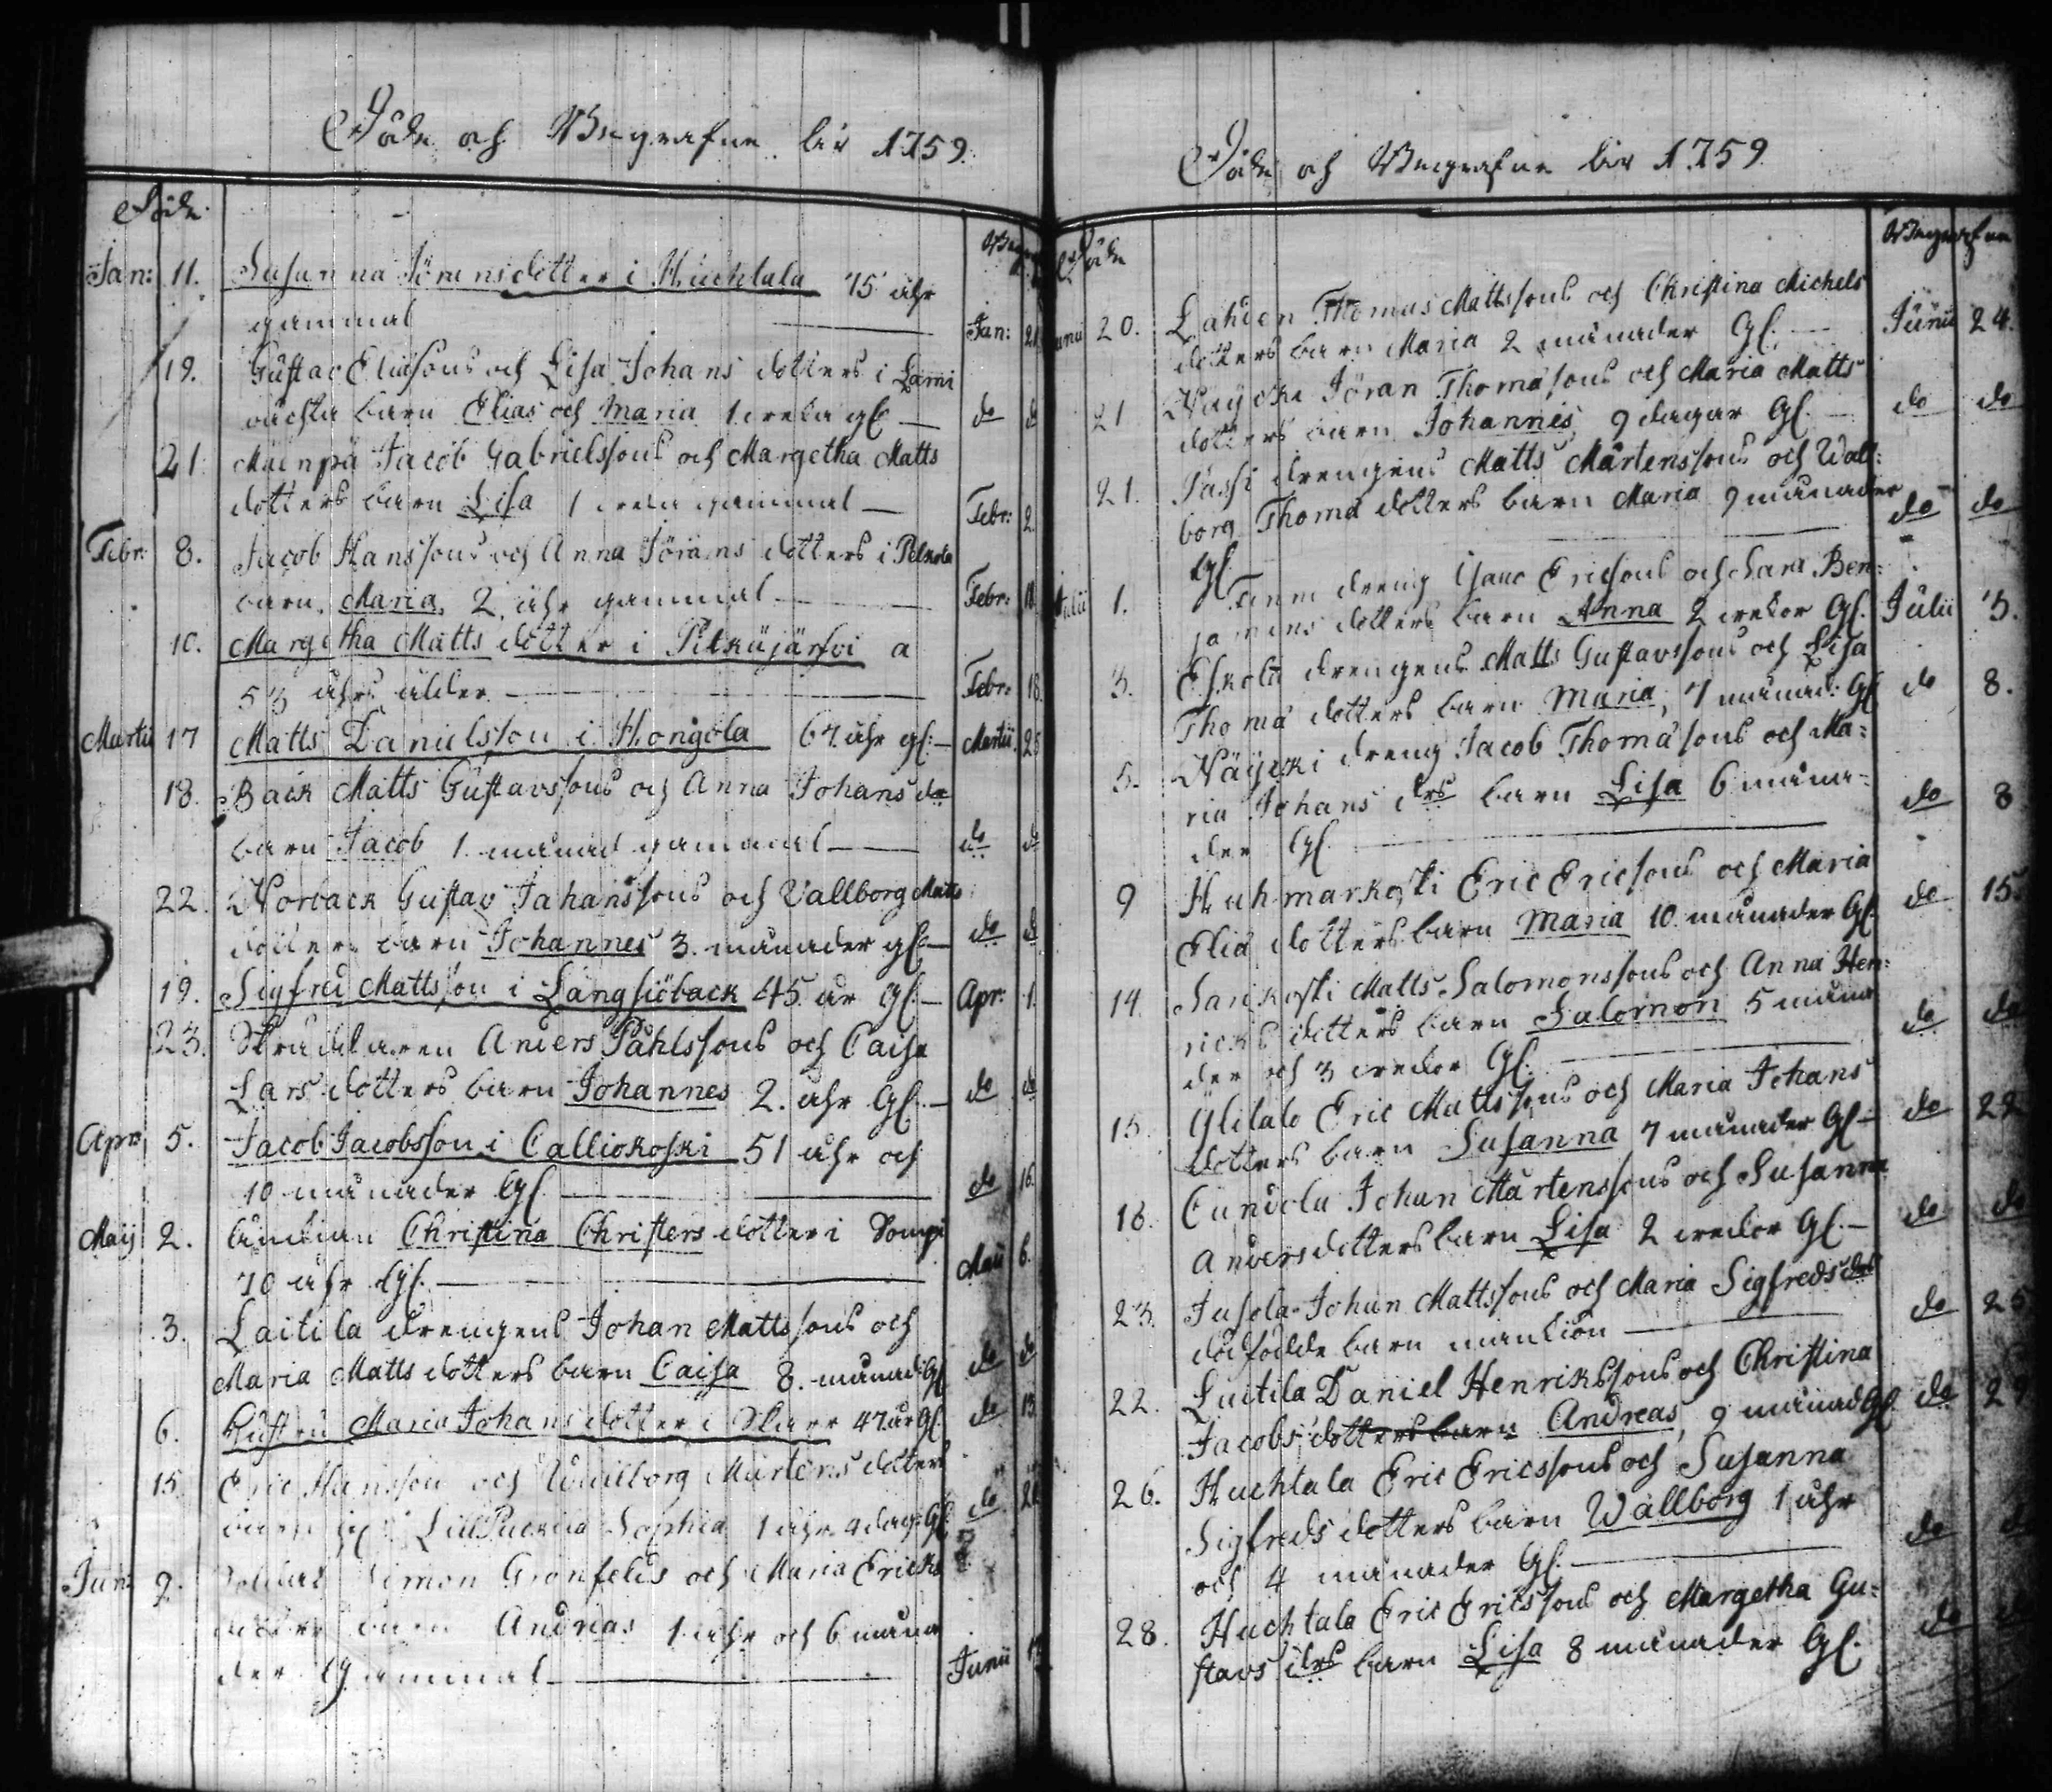 Döde och Begrafne åhr 1759.
Döde.
Begr
Jan: 11. Susanna Jöransdotter i Huchtala 75 åhr
gammal Jan: 21
19. Gustav Eliæsons och Lisa Johans dotters i Lami
barn Elias och Maria 1 weka gl do d
21. Mäenpä Jacob Gabrielssons och Margetha Matts
dotters barn Lisa 1 weka gammal Febr: 2.
Febr: 8. Jacob Hanssons och Anna Jörans dotters i Pelkola
barn Maria 2 åhr gammal Febr: 11.
10. Margetha Matts dotter i Pitkäjärfvi a
53 åhrs ålder Febr: 18.
Martii 17 Matts Danielsson i Hongola 67 åhr gl: Martii. 25
18. Back Matts Gustavssons och Anna Johans dr
barn Jacob 1 månad gammal do do
22. Norback Gustav Johanssons och Vallborg Matts
dotters barn Johannes 3. månader gl: do d
19. Sigfred Mattsson i Långsiöback 45 år Gl. Apr: 1.
23. Skräddaren Anders Påhlssons och Caisa
Lars dotters barn Johannes 2. åhr Gl. do do
Apr: 5. Jacob Jacobsson i Calliokoski 51 åhr och
10 månader Gl do 16.
Maij 2. Enkian Christina Christers dotter i Sompi
70 åhr Gl. Maii 6.
3. Laitila drengens Johan Mattssons och
Maria Matts dotters barn Caisa 8. månad: Gl do do
6. Hustru Maria Johans dotter i Skarr 47 år Gl. do 13
15. Eric Hansson och Wallborg Mårtens dotters
barn Sophia 1 åhr 4 dag: Gl do 20
Jun: 9. Soldat Simon Grönfelds och Maria Ericks
dotter barn Andreas 1 åhr och 6 måna
der Gammal Junii
Döde och Begrafne åhr 1759
Döde
Begrafne
Junii 20. Lahden Thomas Mattssons och Christina Michels
dotters barn Maria 2 månader Gl. Junii 24.
21 Näycki Jöran Thomæsons och Maria Matts
dotters barn Johannes, 9 dagar Gl. do do
21. Passi drengens Matts Mårtenssons och Wall:
borg Thomæ dotters barn Maria 9 månader do do
Gl.
Julii 1. Finni dreng Isaac Ericsons och Sara Ben:
jamins dotters barn Anna 2 wekor Gl. Julii 3.
3. Eskola drengens Matts Gustavssons och Lisa
Thomæ dotters barn Maria, 7 månad: Gl do 8.
5. Näycki dreng Jacob Thomæsons och Ma:
ria Johans drs barn Lisa 6 måna-
der Gl. do 8
9 Huhmarkoski Eric Ericsons och Maria
Eliæ dotters barn Maria 10 månader Gl. do 15.
14. Sarikoski Matts Salomonssons och Anna Hen:
ricks dotters barn Salomon 5 måna
der och 3 wekor Gl. do do
15. Ylitalo Eric Mattssons och Maria Johans
dotters barn Susanna 7 månader Gl do 22
16. Cundola Johan Mårtenssons och Susanna
Anders dotters barn Lisa 2 wekor Gl. do do
23. Jusola Johan Mattssons och Maria Sigfreds drs
dödfödde barn mankiön do 25
22. Luitila Daniel Henrikssons och Christina
Jacobs dotters barn Andreas, 9 månad Gl. do 2
26. Huchtala Eric Ericssons och Susanna
Sigfreds dotters barn Wallborg 1 åhr
och 4 månader Gl. do d
28. Huchtala Eric Ericssons och Margetha Gu:
stavs drs barn Lisa 8 månader Gl. do